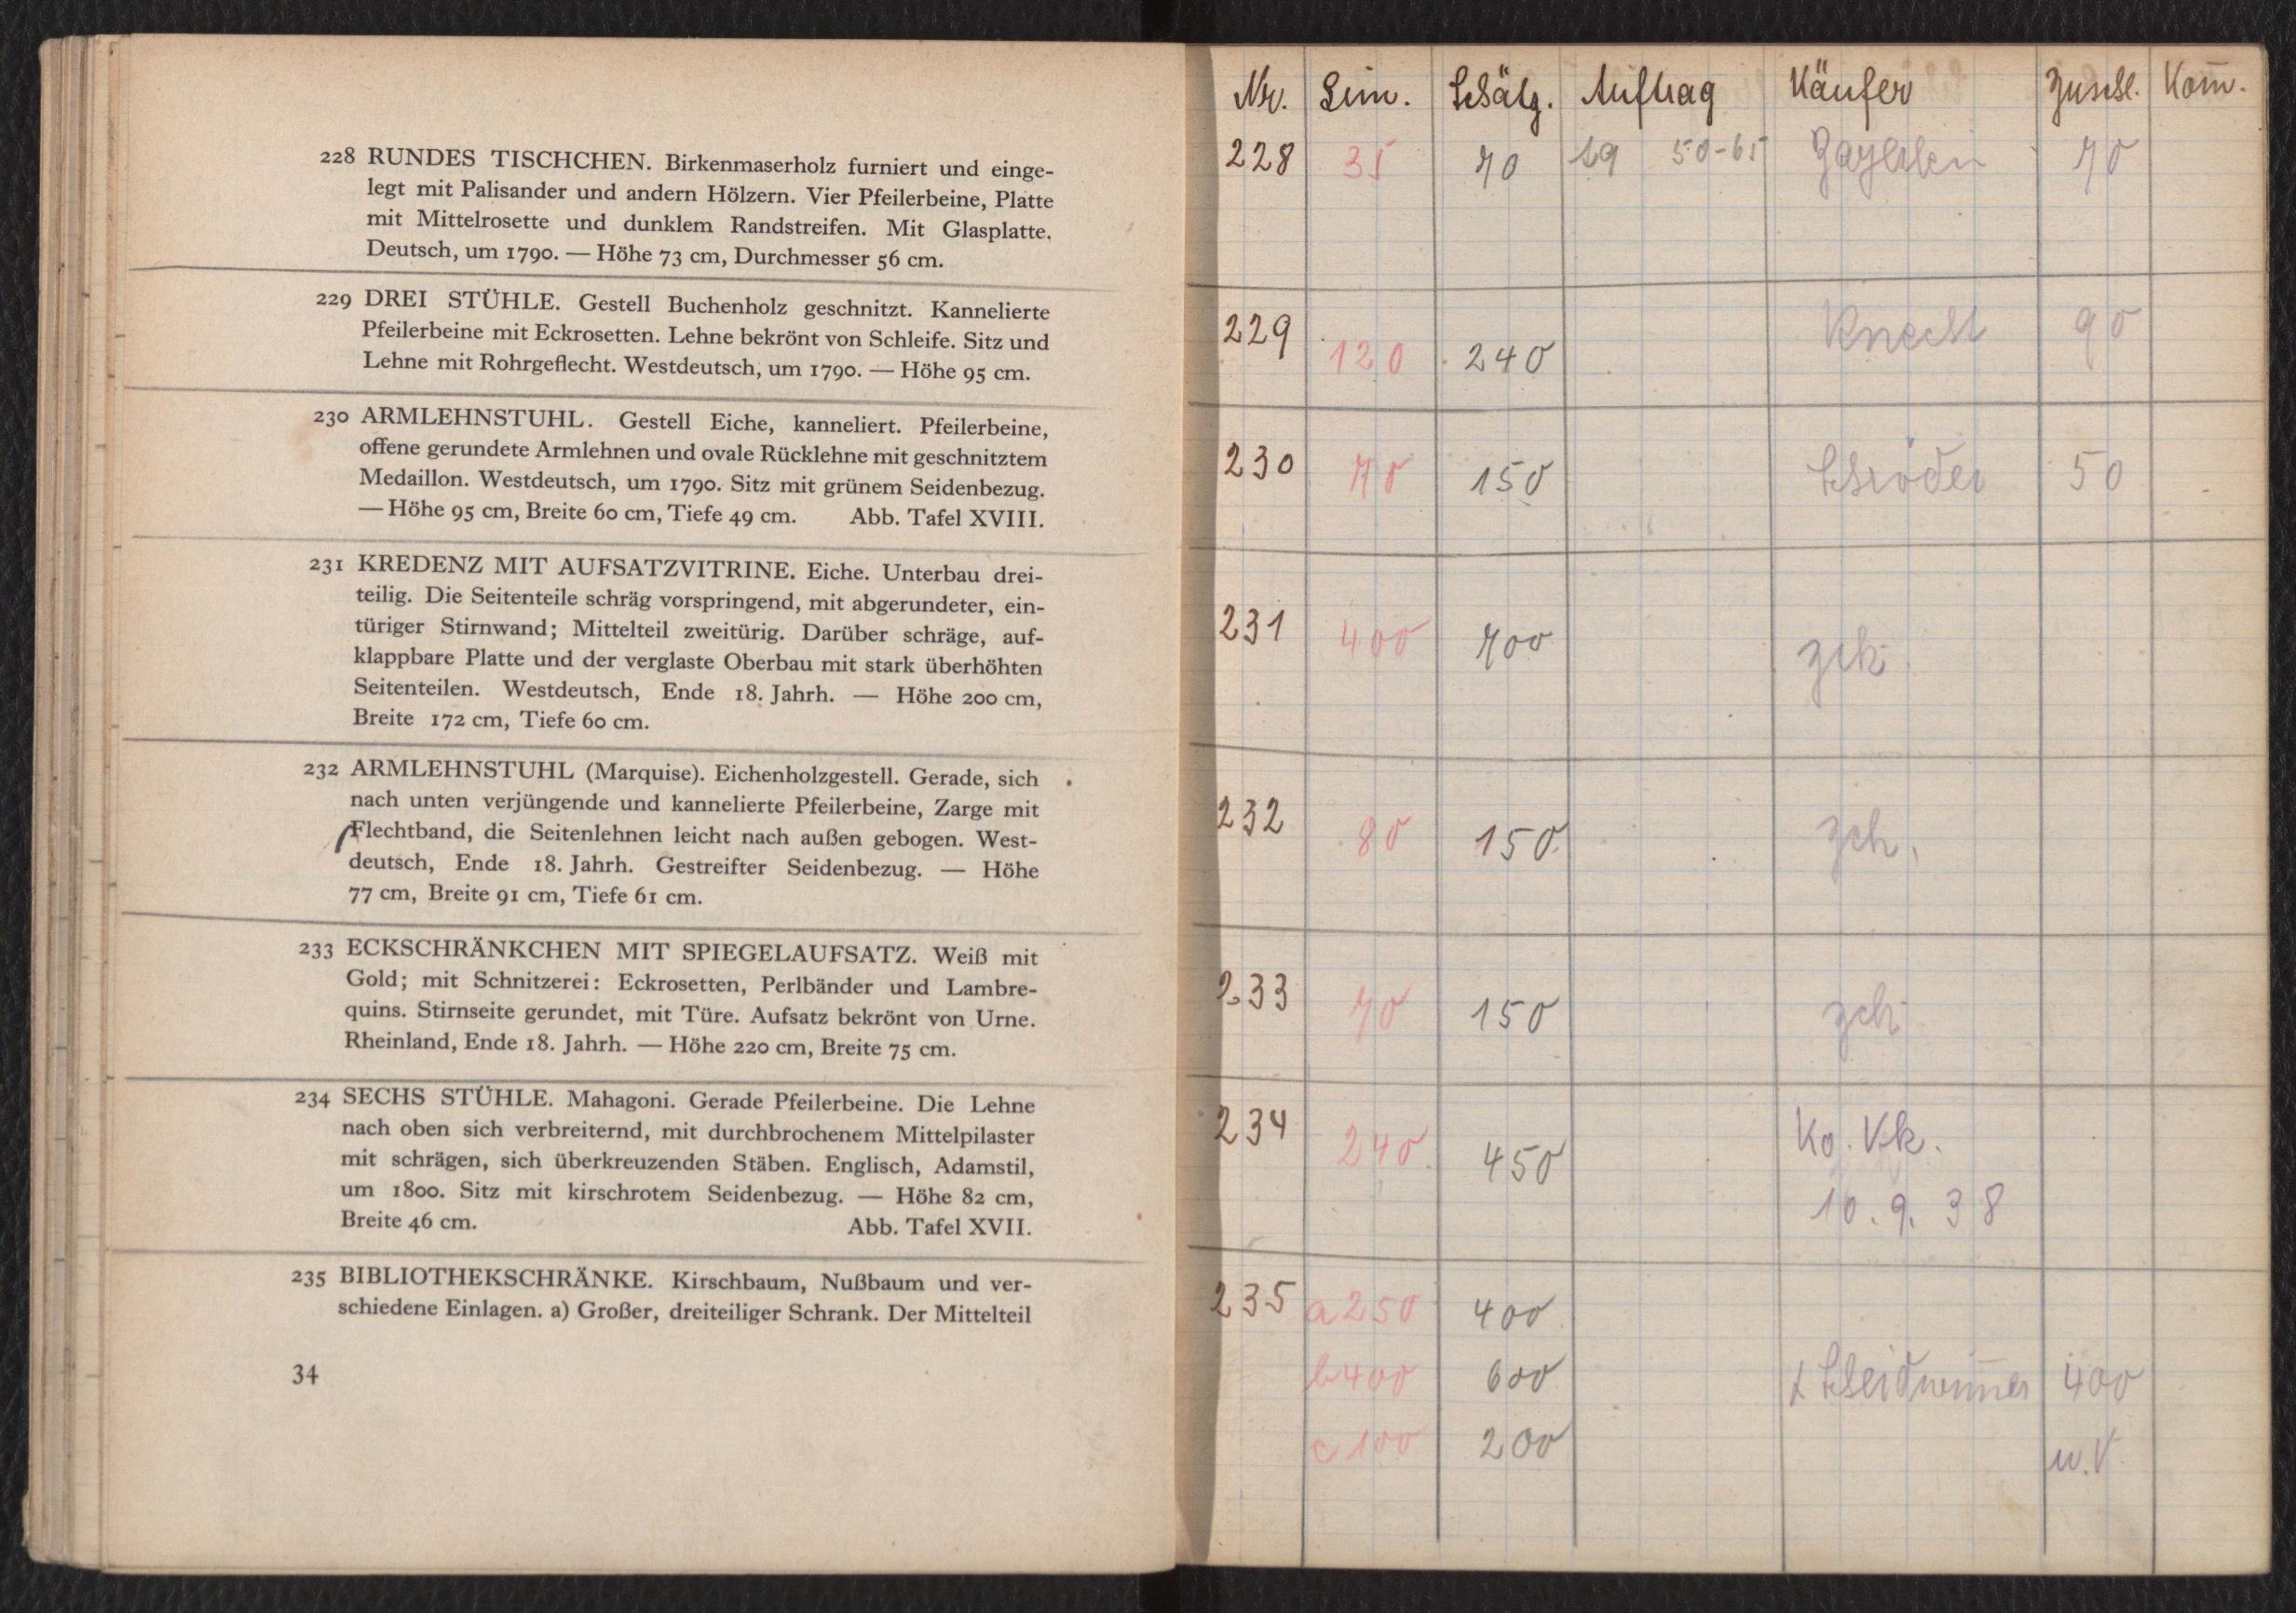 228 RUNDES TISCHCHEN. Birkenmaserholz furniert und einge-
legt mit Palisander und andern Hölzern. Vier Pfeilerbeine, Platte
mit Mittelrosette und dunklem Randstreifen. Mit Glasplatte.
Deutsch, um 1790. — Höhe 73 cm, Durchmesser 56 cm.
229 DREI STÜHLE. Gestell Buchenholz geschnitzt. Kannelierte
Pfeilerbeine mit Eckrosetten. Lehne bekrönt von Schleife. Sitz und
Lehne mit Rohrgeflecht. Westdeutsch, um 1790. — Höhe 95 cm.
230 ARMLEHNSTUHL. Gestell Eiche, kanneliert. Pfeilerbeine,
offene gerundete Armlehnen und ovale Rücklehne mit geschnitztem
Medaillon. Westdeutsch, um 1790. Sitz mit grünem Seidenbezug.
— Höhe 95 cm, Breite 60 cm, Tiefe 49 cm. Abb. Tafel XVIII.
231 KREDENZ MIT AUFSATZVITRINE. Eiche. Unterbau drei-
teilig. Die Seitenteile schräg vorspringend, mit abgerundeter, ein-
türiger Stirnwand; Mittelteil zweitürig. Darüber schräge, auf-
klappbare Platte und der verglaste Oberbau mit stark überhöhten
Seitenteilen. Westdeutsch, Ende 18. Jahrh. — Höhe 200 cm,
Breite 172 cm, Tiefe 60 cm.
232 ARMLEHNSTUHL (Marquise). Eichenholzgestell. Gerade, sich
nach unten verjüngende und kannelierte Pfeilerbeine, Zarge mit
Flechtband, die Seitenlehnen leicht nach außen gebogen. West-
deutsch, Ende 18. Jahrh. Gestreifter Seidenbezug. — Höhe
77 cm, Breite 91 cm, Tiefe 61 cm.
233 ECKSCHRÄNKCHEN MIT SPIEGELAUFSATZ. Weiß mit
Gold; mit Schnitzerei: Eckrosetten, Perlbänder und Lambre-
quins. Stirnseite gerundet, mit Türe. Aufsatz bekrönt von Urne.
Rheinland, Ende 18. Jahrh. — Höhe 220 cm, Breite 75 cm.
234 SECHS STÜHLE. Mahagoni. Gerade Pfeilerbeine. Die Lehne
nach oben sich verbreiternd, mit durchbrochenem Mittelpilaster
mit schrägen, sich überkreuzenden Stäben. Englisch, Adamstil,
um 1800. Sitz mit kirschrotem Seidenbezug. — Höhe 82 cm,
Breite 46 cm. Abb. Tafel XVII.
235 BIBLIOTHEKSCHRÄNKE. Kirschbaum, Nußbaum und ver-
schiedene Einlagen. a) Großer, dreiteiliger Schrank. Der Mittelteil
34
Nr. Lim. Schätz. Auftrag Käufer Zuschl. Kom̅.
228 35 70 50-65 70
229 120 240 Knecht 90
230 70 150 Schröder 50
231 400 700 zck
232 80 150 zck.
233 70 150 zck
234 240 450 Ko. Vk.
10. 9. 38
235 a 250 400
b 400 600 400
c 100 200 u.V.